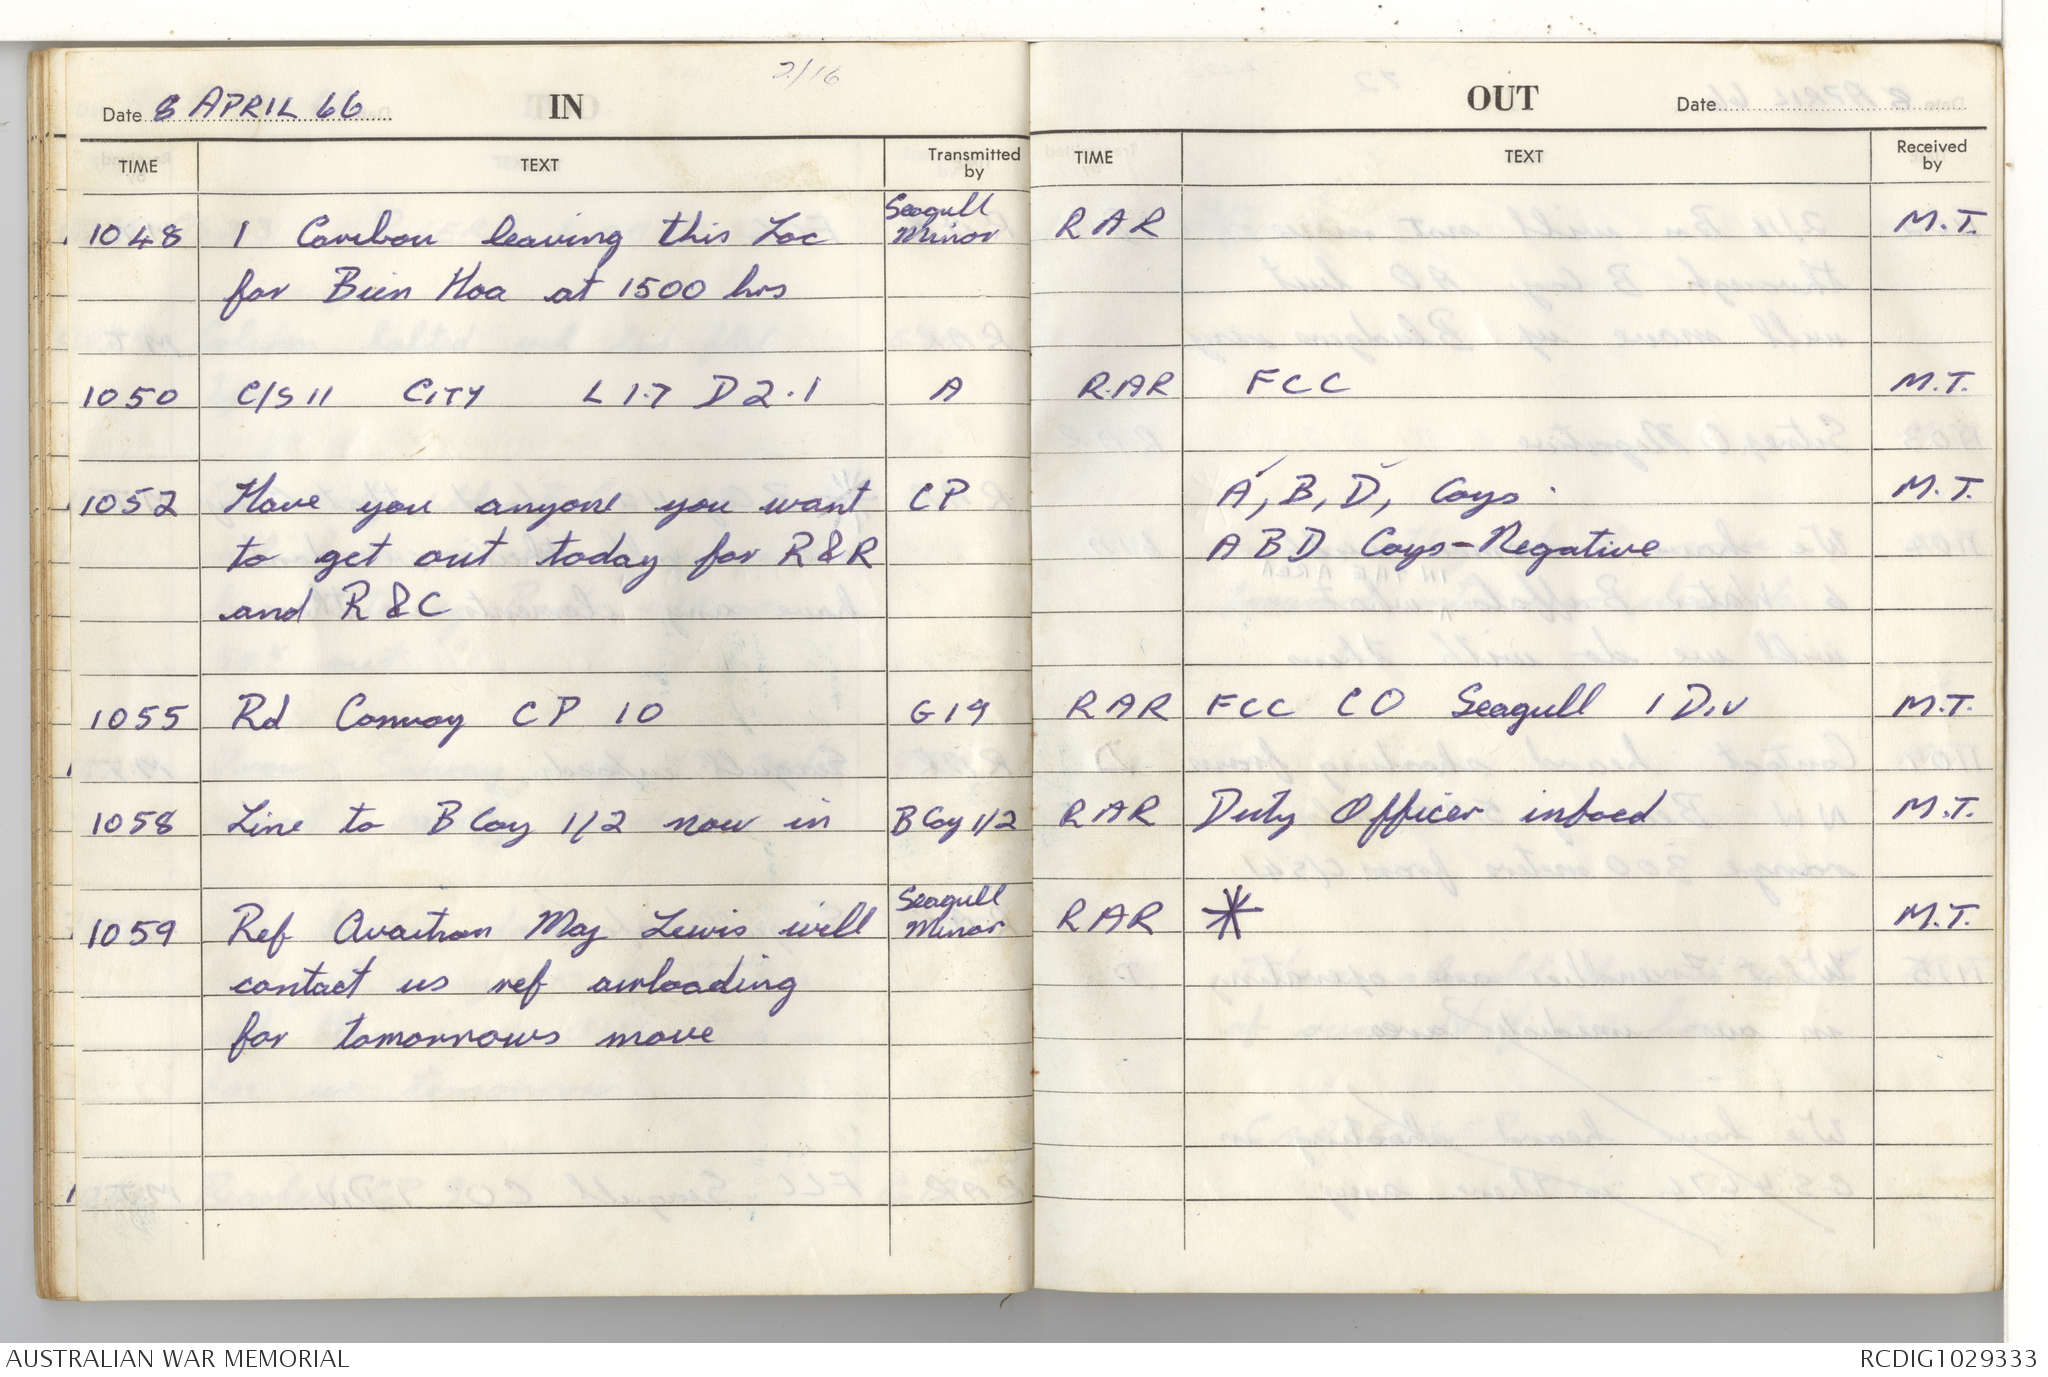 2/16
Date 8 APRIL 66 IN
TIME TEXT Transmitted by
1048 1 Caribou leaving this Loc Seagull Minor
for Bien Hoa at 1500 hrs
1050 C/S 11 CITY L 1.7 D 2.1 A
1052 Have you anyone you want CP
to get out today for R&R
and R&C
1055 Rd Convoy CP 10 G19
1058 Line to B Coy 1/2 now in B Coy 1/2
1059 Ref Avaition Maj Lewis will Seagull Minor
contact us ref airloading
for tomorrows move
OUT Date
TIME TEXT Received by
RAR M.T.
RAR FCC M.T.
A, B, D, Coys M.T.
A B D Coys-Negative
RAR FCC CO Seagull 1 Div M.T.
RAR Duty Officer infoed M.T.
RAR * M.T.
AUSTRALIAN WAR MEMORIAL RCDIG1029333